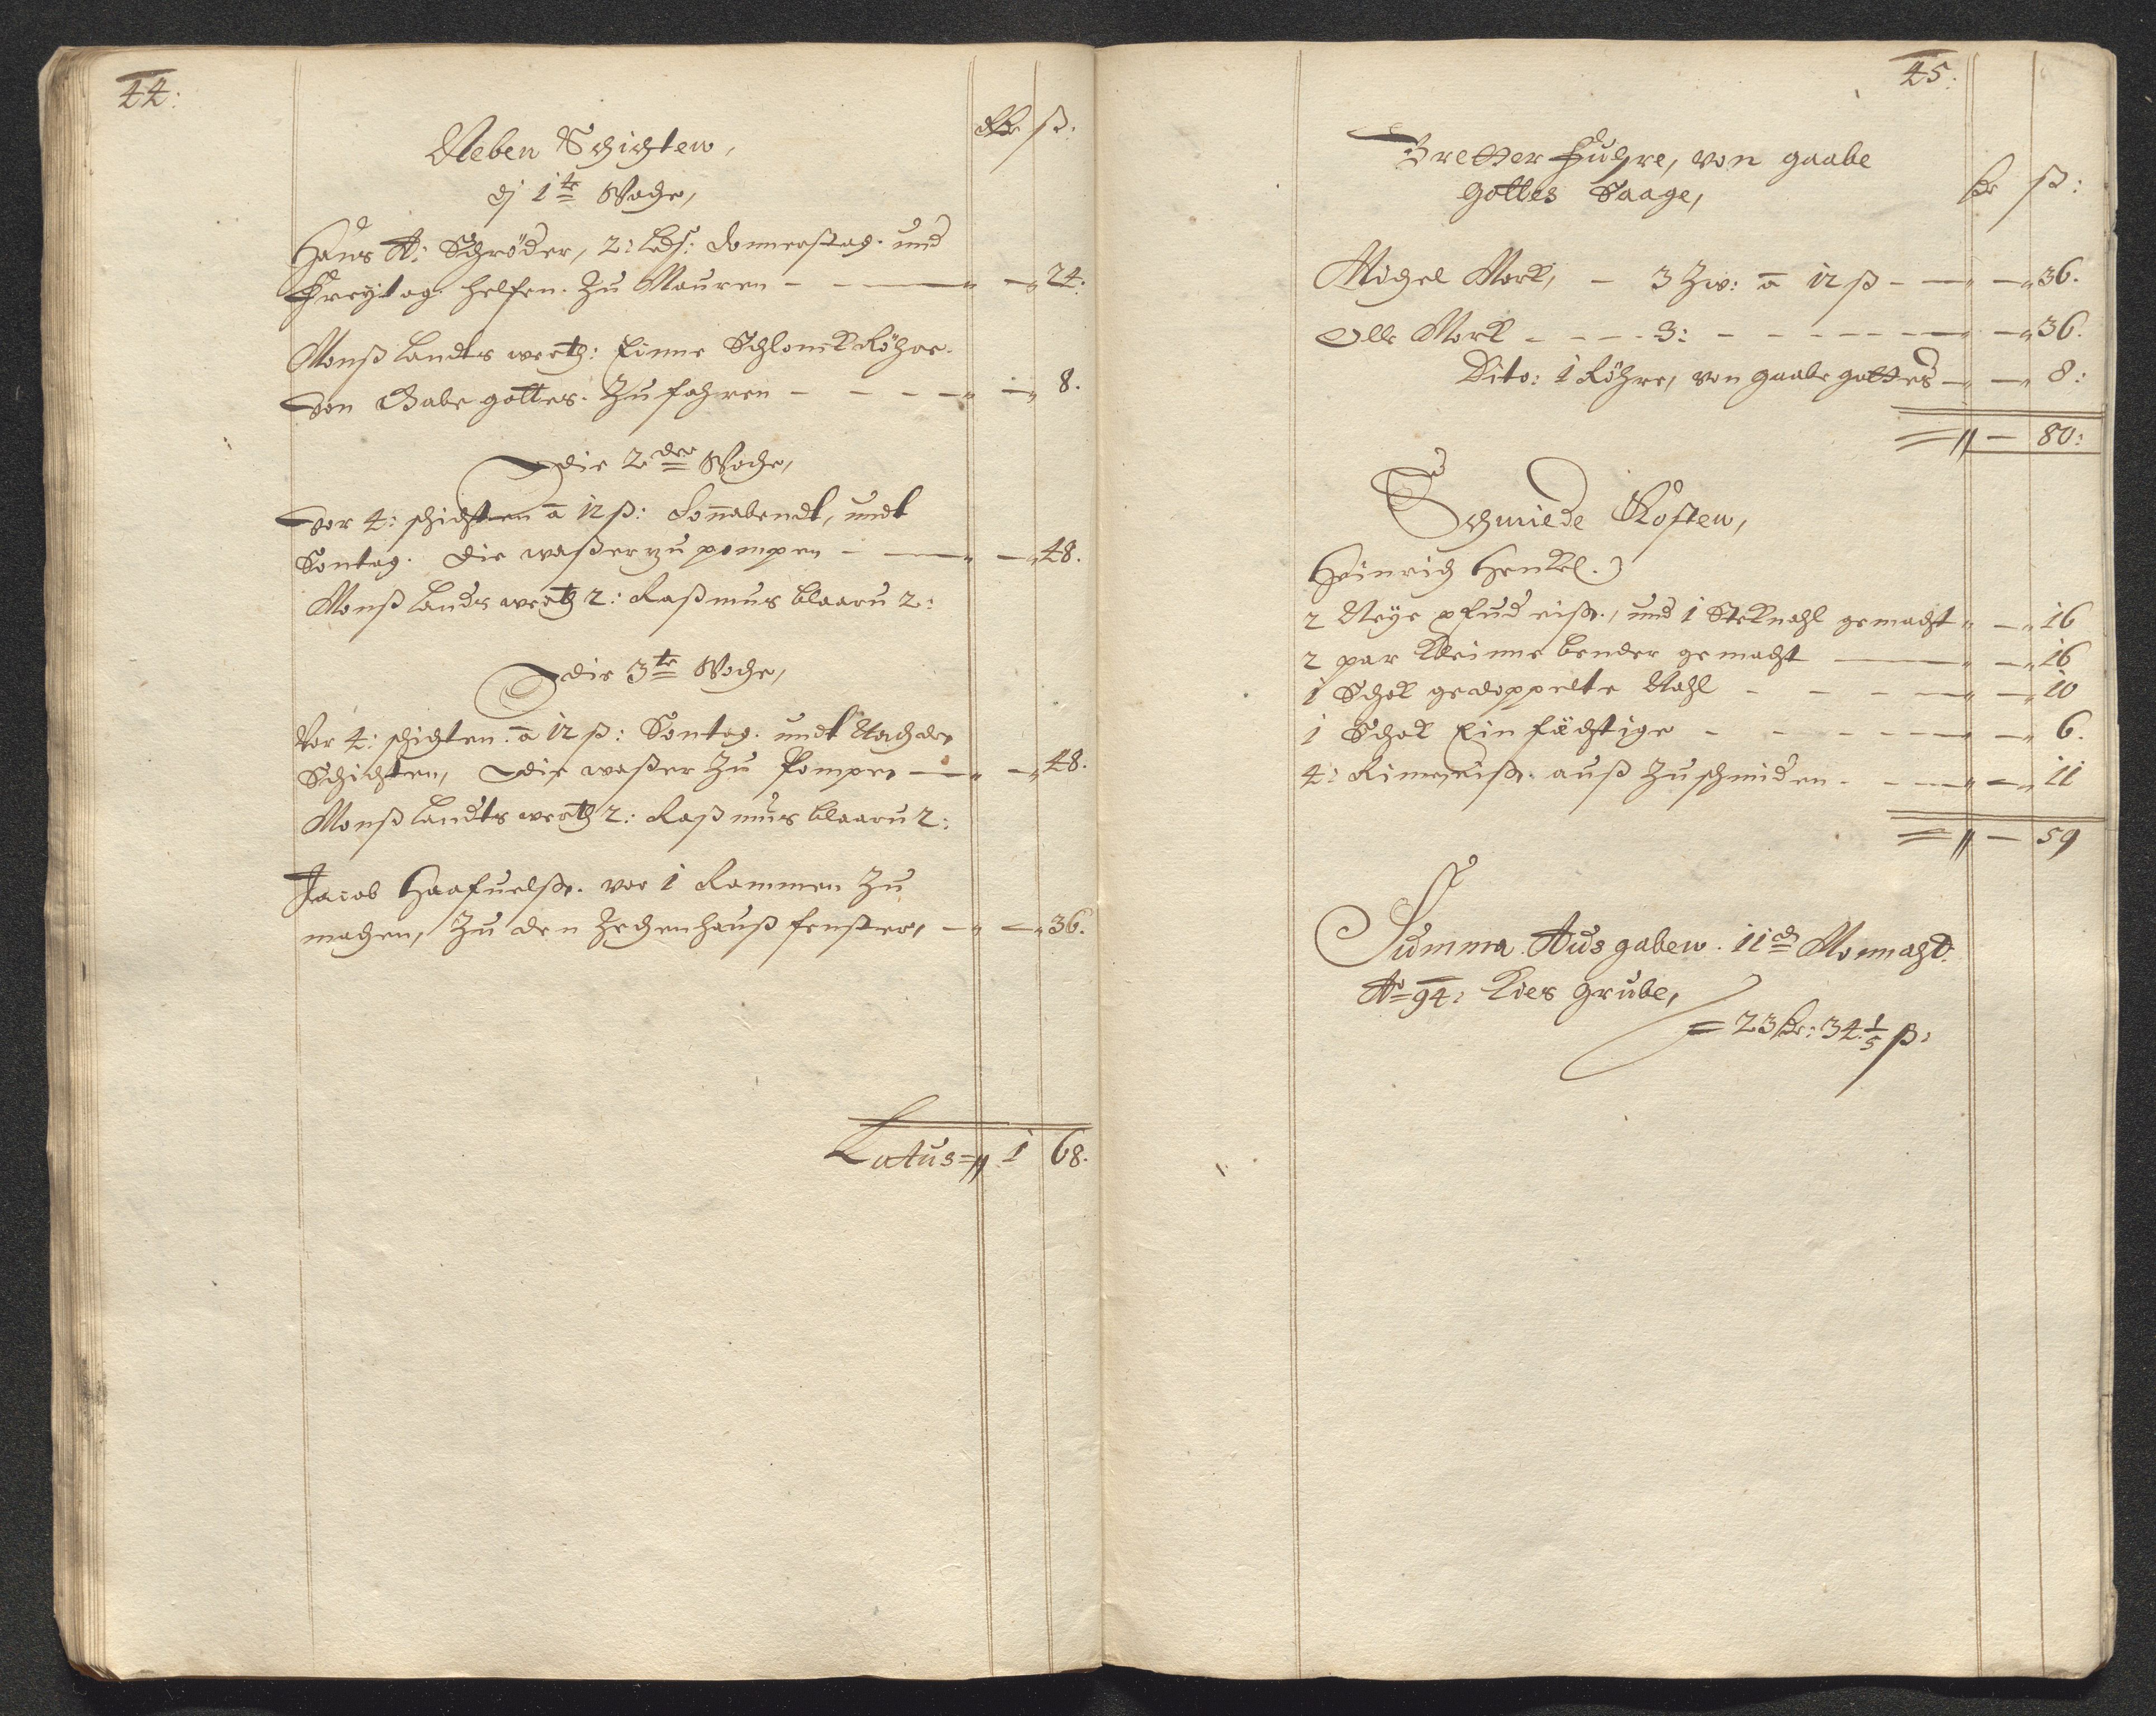 44:
Rdr ß:
Neben Schichten,
dj 1te Woche,
Hans A: Schröder, 2: Donnerstag. und
Freytag. helfen. Zu Mauren - - - " - " 24.
Monß Landts werch: Einne Schlonck Röhre.
von Gabe gottes. Zu fahren - - - - " - " 8.
die 2der Woche,
vor 4: schichten ā 12 ß: Sonnabendt, undt
Sontag. die waßer zu pompen - - " - " 48.
Monß Lands werch 2: Raßmus blaaru 2:
die 3te Woche,
Vor 4: schichten. ā 12 ß: Sontag. undt Nach der
Schichten, die waßer Zu Pompen - " - " 48.
Monß Landts werch 2: Raßmus blaaru 2:
Jacob vor 1 Rammen Zu
machen, Zu den Zechenhauß fenster, - " - " 36.
Latus = " 1 68.
45:
Bretter Fuhre, von gaabe
Gottes Saage,
Rdr ß:
Michel Mork, - 3 Zw: ā 12 ß - - " - " 36.
Olle Mork - - - - 3: - - - - - - " - " 36.
Dito: 1 Röhre, von gaabe gottes - " - " 8:
= " - 80:
Schmiede Kosten,
Heinrich Henkel.
2 Neye und 1 Steknahl gemacht " - " 16
2 par kleinne bender gemacht - " - " 16
1 Schok gedoppelte Nahl - - - - " - " 10
1 Schok Einfächtige - - - - - " - " 6.
4: auß Zu schmiden - - - " - " 11
= " - 59
Summa Ausgaben. 11ch Monnaht.
Ao 94: Kies Grube,
= 23 Rdr: 34 1/5 ß: